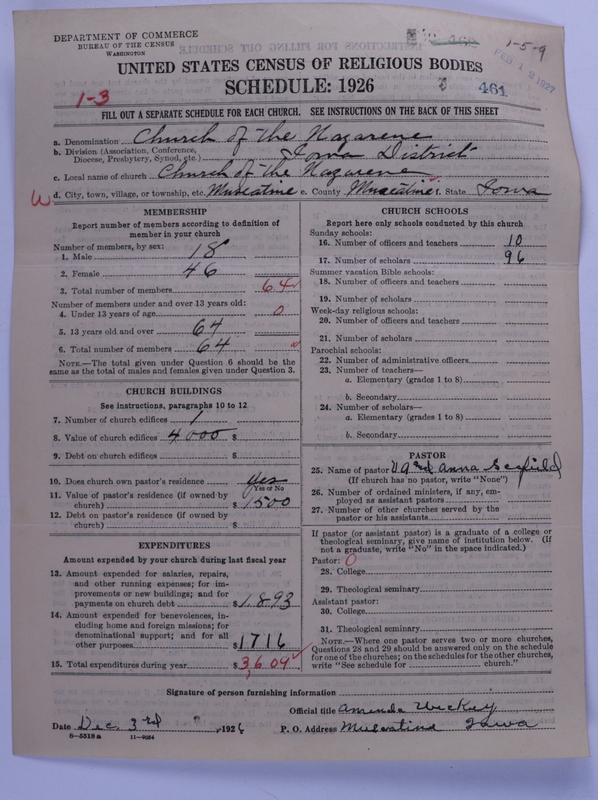 DEPARTMENT OF COMMERCE
BUREAU OF THE CENSUS
WASHINGTON
1-5-9
FEB 12 1927
UNITED STATES CENSUS OF RELIGIOUS BODIES
SCHEDULE: 1926
1-3
461
FILL OUT A SEPARATE SCHEDULE FOR EACH CHURCH. SEE INSTRUCTIONS ON THE BACK OF THIS SHEET
a. Denomination Church of the Nazarene
b. Division (Association, Conference, Diocese, Presbytery, Synod, etc.) Iowa District
c. Local name of church Church of the Nazarene
W d. City, town, village, or township, etc. Muscatine e. County Muscatine f. State Iowa
MEMBERSHIP
Report number of members according to definition of
member in your church
Number of members, by sex:
1. Male 18
2. Female 46
3. Total number of members 64
Number of members under and over 13 years old:
4. Under 13 years of age 0
5. 13 years old and over 64
6. Total number of members 64
NOTE.—The total given under Question 6 should be the
same as the total of males and females given under Question 3.
CHURCH BUILDINGS
See instructions, paragraphs 10 to 12
7. Number of church edifices 1
8. Value of church edifices 4000 $
9. Debt on church edifices $
10. Does church own pastor's residence yes
Yes or No
11. Value of pastor's residence (if owned by
church) $ 1500
12. Debt on pastor's residence (if owned by
church) $
EXPENDITURES
Amount expended by your church during last fiscal year
13. Amount expended for salaries, repairs,
and other running expenses; for im-
provements or new buildings; and for
payments on church debt $ 1893
14. Amount expended for benevolences, in-
cluding home and foreign missions; for
denominational support; and for all
other purposes $ 1716
15. Total expenditures during year $ 3,609
CHURCH SCHOOLS
Report here only schools conducted by this church
Sunday schools:
16. Number of officers and teachers 10
17. Number of scholars 96
Summer vacation Bible schools:
18. Number of officers and teachers
19. Number of scholars
Week-day religious schools:
20. Number of officers and teachers
21. Number of scholars
Parochial schools:
22. Number of administrative officers
23. Number of teachers—
a. Elementary (grades 1 to 8)
b. Secondary
24. Number of scholars—
a. Elementary (grades 1 to 8)
b. Secondary
PASTOR
25. Name of pastor Anna
(If church has no pastor, write "None")
26. Number of ordained ministers, if any, em-
ployed as assistant pastors
27. Number of other churches served by the
pastor or his assistants
If pastor (or assistant pastor) is a graduate of a college or
theological seminary, give name of institution below. (If
not a graduate, write "No" in the space indicated.)
Pastor: 0
28. College
29. Theological seminary
Assistant pastor:
30. College
31. Theological seminary
NOTE.—Where one pastor serves two or more churches,
Questions 28 and 29 should be answered only on the schedule
for one of the churches; on the schedules for the other churches,
write "See schedule for church."
Signature of person furnishing information
Official title Amanda
Date Dec. 3rd, 1926 P. O. Address Muscatine Iowa
8-5518a 11-9264